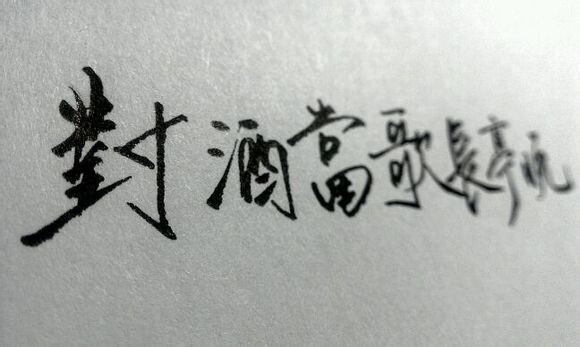 對酒當歌長亭晚